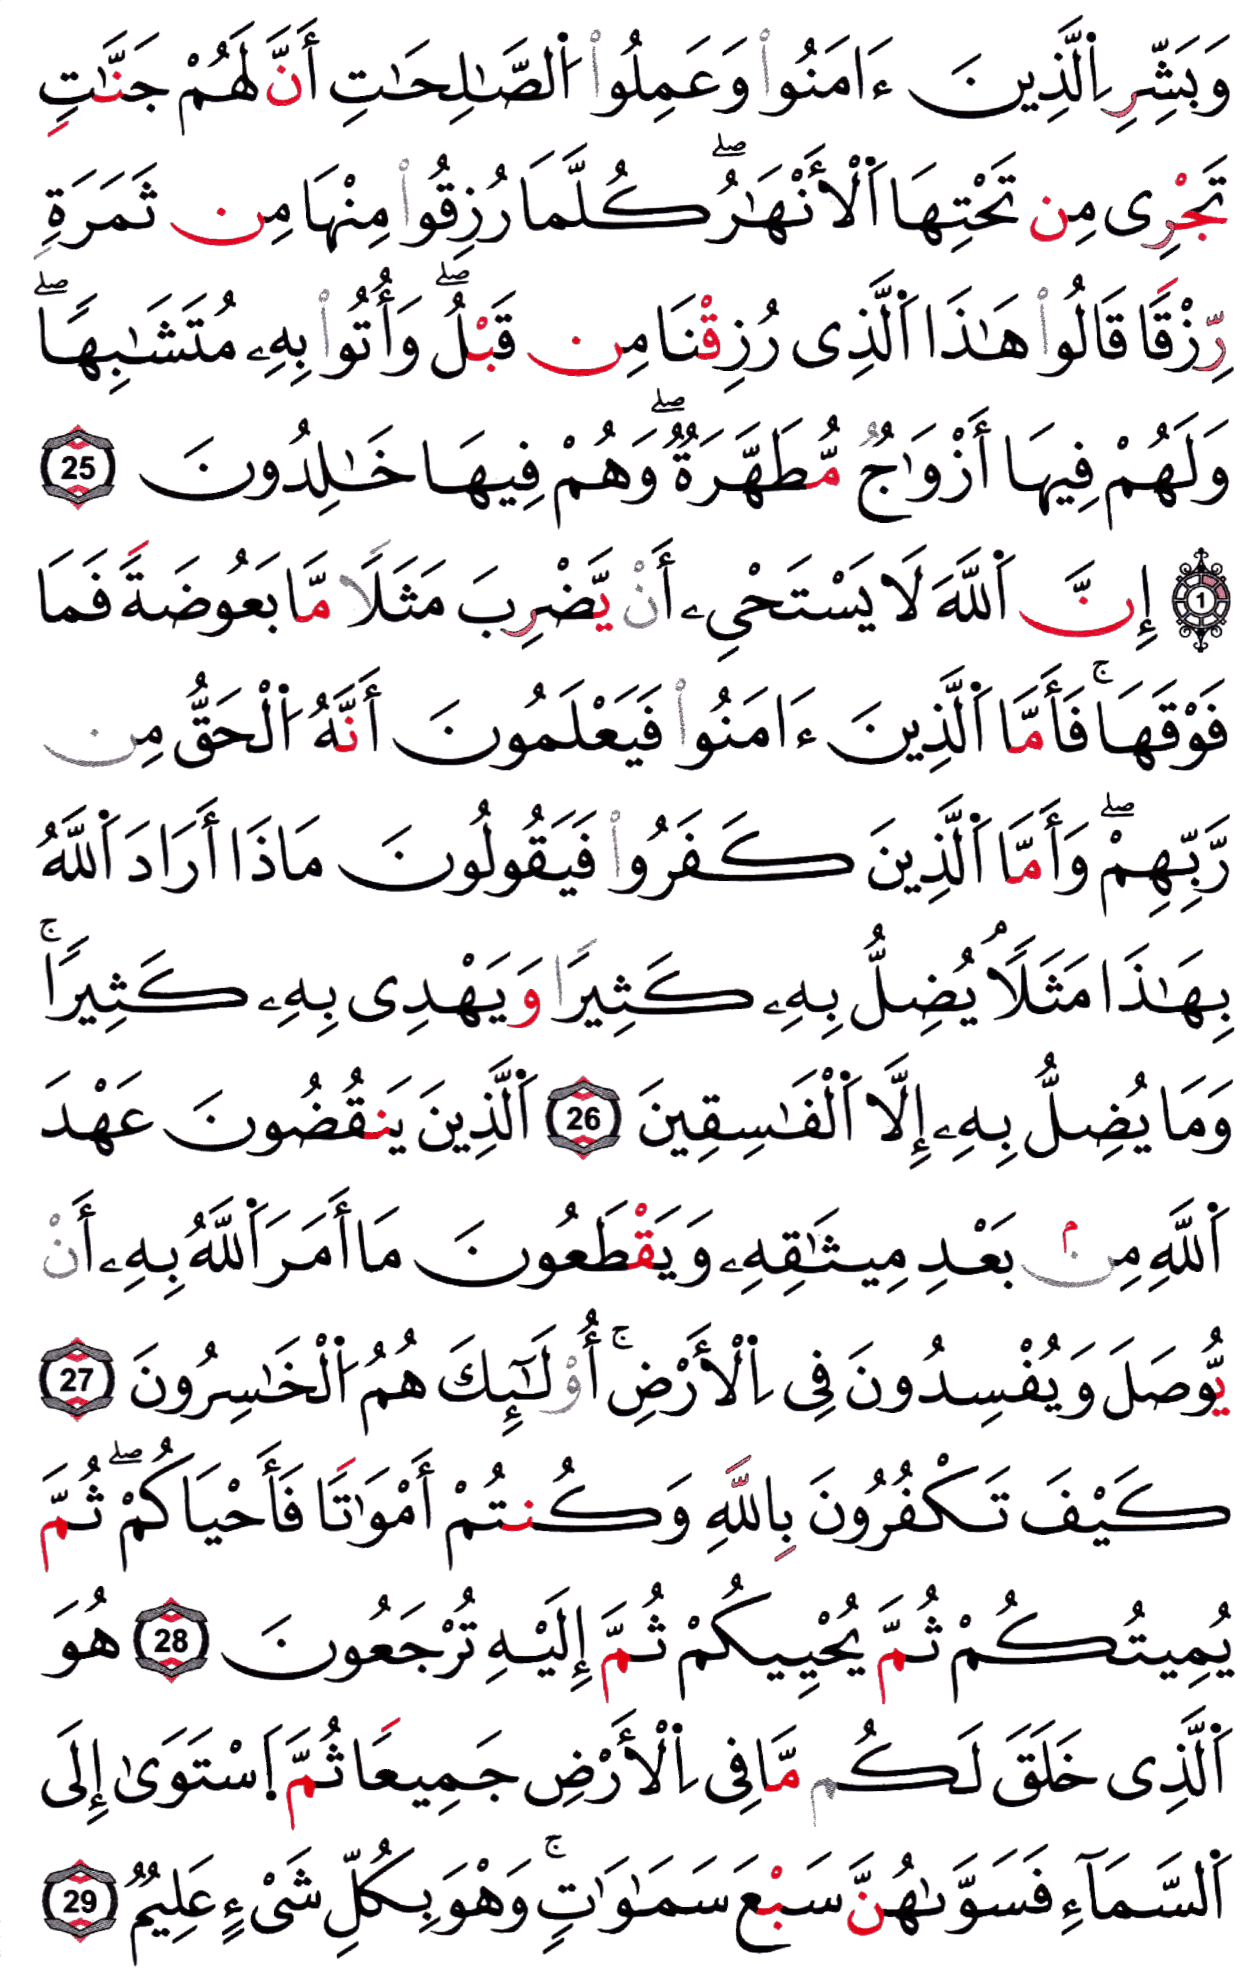 وَبَشِّرِ اِ۬لَّذِينَ ءَامَنُواْ وَعَمِلُواْ اُ۬لصَّٰلِحَٰتِ أَنَّ لَهُمْ جَنَّٰتٖ
تَجْرِى مِن تَحْتِهَا اَ۬لْأَنْهَٰرُۖ كُلَّمَا رُزِقُواْ مِنْهَا مِن ثَمَرَةٖ
رِّزْقٗا قَالُواْ هَٰذَا اَ۬لَّذِى رُزِقْنَا مِن قَبْلُۖ وَأُتُواْ بِهِۦ مُتَشَٰبِهٗاۖ
وَلَهُمْ فِيهَا أَزْوَٰجٞ مُّطَهَّرَةٞۖ وَهُمْ فِيهَا خَٰلِدُونَ 25
1 إِنَّ اَ۬للَّهَ لَا يَسْتَحْىِۦ أَنْ يَّضْرِبَ مَثَلٗا مَّا بَعُوضَةٗ فَمَا
فَوْقَهَاۚ فَأَمَّا اَ۬لَّذِينَ ءَامَنُواْ فَيَعْلَمُونَ أَنَّهُ اُ۬لْحَقُّ مِن
رَّبِّهِمْۖ وَأَمَّا اَ۬لَّذِينَ كَفَرُواْ فَيَقُولُونَ مَاذَا أَرَادَ اَ۬للَّهُ
بِهَٰذَا مَثَلٗا يُضِلُّ بِهِۦ كَثِيرٗا وَيَهْدِى بِهِۦ كَثِيرٗاۚ
وَمَا يُضِلُّ بِهِۦ إِلَّا اَ۬لْفَٰسِقِينَ 26 اَ۬لَّذِينَ يَنقُضُونَ عَهْدَ
اَ۬للَّهِ مِنۢ بَعْدِ مِيثَٰقِهِۦ وَيَقْطَعُونَ مَا أَمَرَ اَ۬للَّهُ بِهِۦ أَنْ
يُّوصَلَ وَيُفْسِدُونَ فِى اِ۬لْأَرْضِۚ أُوْلَٰٓئِكَ هُمُ اُ۬لْخَٰسِرُونَ 27
كَيْفَ تَكْفُرُونَ بِاللَّهِ وَكُنتُمْ أَمْوَٰتٗا فَأَحْيَاكُمْۖ ثُمَّ
يُمِيتُكُمْ ثُمَّ يُحْيِيكُمْ ثُمَّ إِلَيْهِ تُرْجَعُونَ 28 هُوَ
اَ۬لَّذِى خَلَقَ لَكُم مَّا فِى اِ۬لْأَرْضِ جَمِيعٗا ثُمَّ اَ۪سْتَوَىٰ إِلَى
اَ۬لسَّمَآءِ فَسَوَّىٰهُنَّ سَبْعَ سَمَٰوَٰتٖۚ وَهْوَ بِكُلِّ شَىْءٍ عَلِيمٞ 29